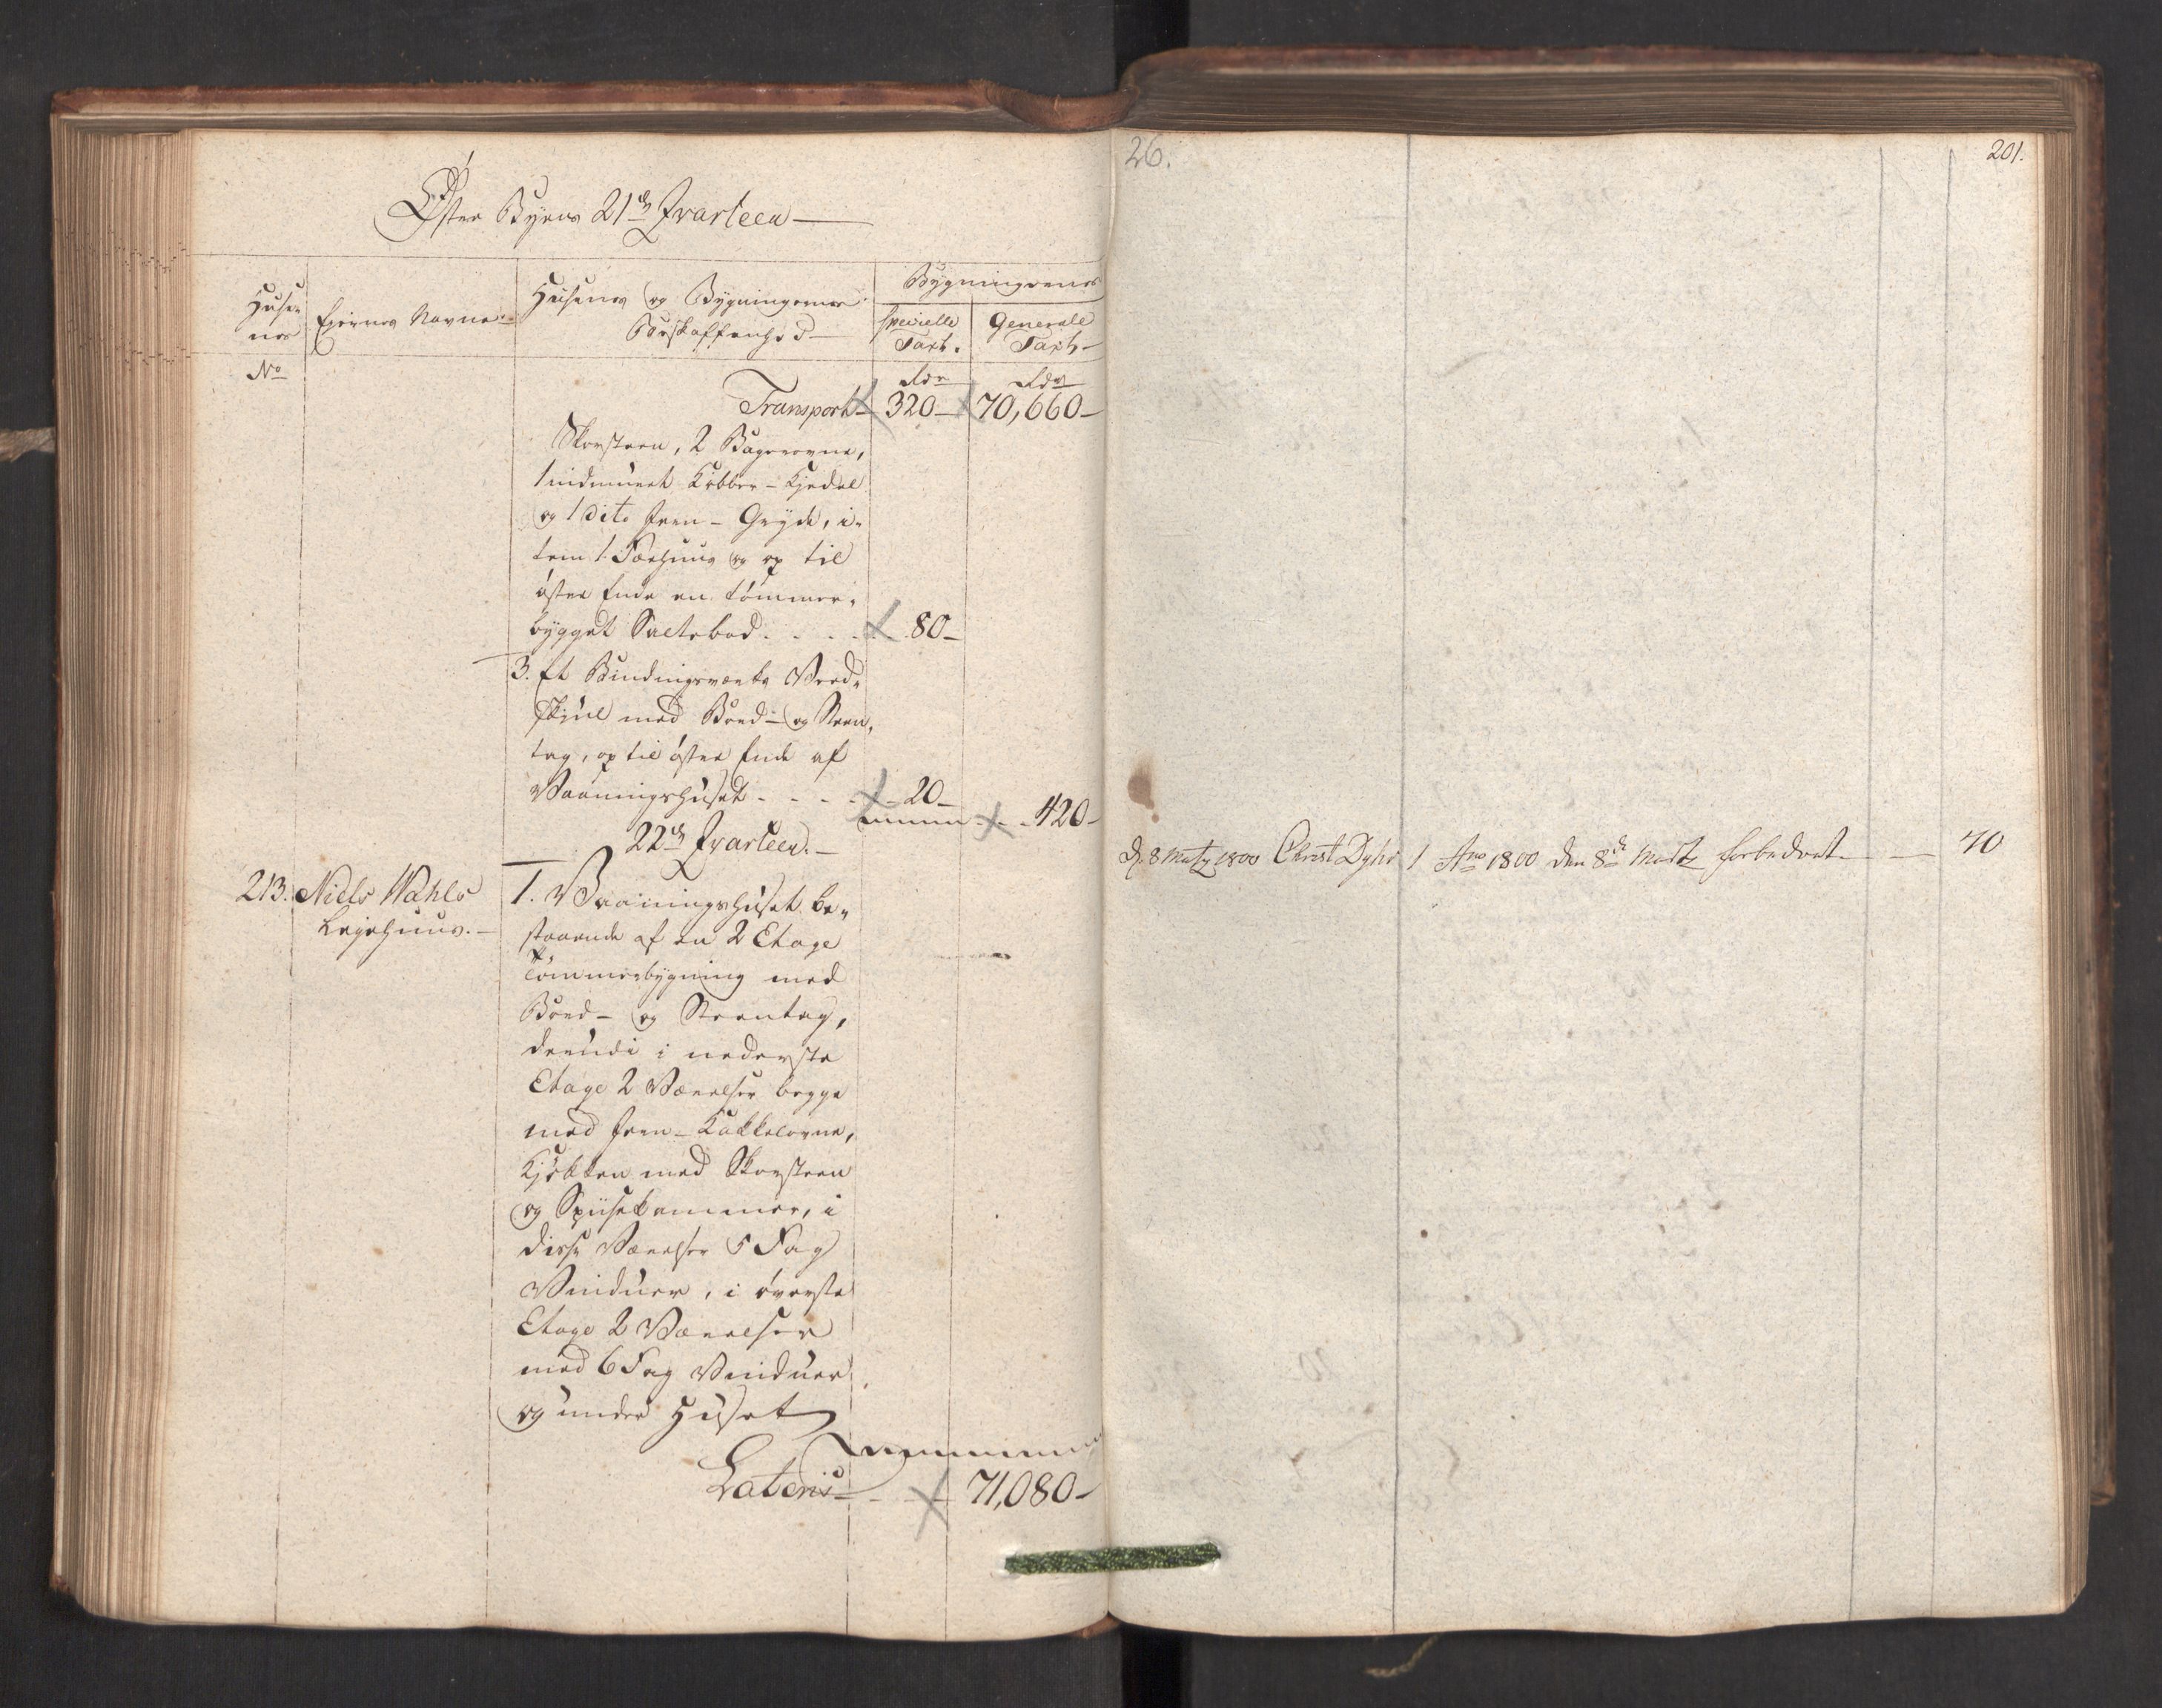 Østre Byens 21de Qvarteer
Huse-
nes
No
Ejernes Navne
Husenes og Bygningernes
Beskaffenhed
Bygningernes
specielle
Taxt.
Generale
Taxt
Rdr
Rdr
Transport 320 70,660
Skorsteen, 2 Bagerovne,
1 indmuret Kobber-Kjedel
og 1 dito Jern-Gryde, i-
tem 1 Fæehuus og op til
østre Ende en tømmer-
bygget Saltebod 80
3. Et Bindingsværks Ved-
Skjul med Bord- og Steen-
tag, op til østre Ende af
Vaaningshuset 20
420
22de Qvarteer.
213. Niels Wahls
Lejehuus.
1. Vaaningshuset be-
staaende af en 2 Etage
Tømmerbygning med
Bord- og Steentag,
derudi i nederste
Etage 2 Værelser begge
med Jern-Kakkelovne,
Kjøkken med Skorsteen
og Spiisekammer, i
disse Værelser 5 Fag
Vinduer, i øverste
Etage 2 Værelser
med 6 Fag Vinduer
og under Huset
Lateris 71,080
26.
201.
d. 8 Martz 1800 Christ Dyhr 1 Ano 1800 den 8de Martz forbedret 70